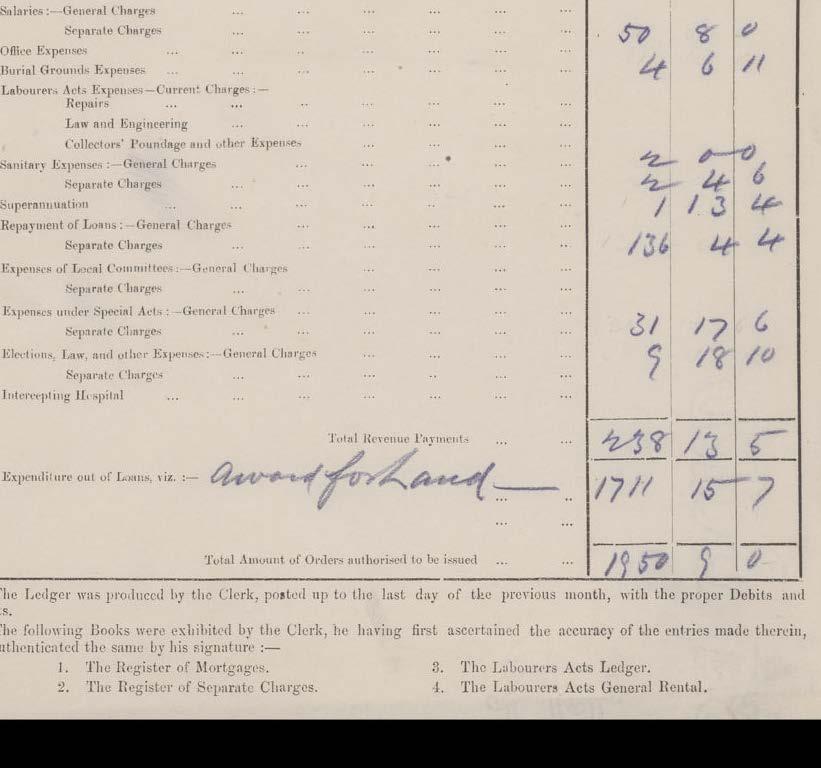 Salaries :—General Charges ... ... ... ... ... ...
Separate Charges ... ... ... ... ... ... 50 8 0
Office Expenses ... ... ... ... ... ... ...
Burial Grounds Expenses ... ... ... ... ... ... ... 4 6 11
Labourers Acts Expenses—Current Charges :—
Repairs ... ... ... ... ... ... ...
Law and Engineering ... ... ... ... ... ...
Collectors' Poundage and other Expenses ... ... ... ...
Sanitary Expenses :—General Charges ... ... ... ... ... 2 0 0
Separate Charges ... ... ... ... ... ... 2 4 6
Superannuation ... ... ... ... ... ... ... 1 13 4
Repayment of Loans :—General Charges ... ... ... ... ...
Separate Charges ... ... ... ... ... ... 136 4 4
Expenses of Local Committees :—General Charges ... ... ... ...
Separate Charges ... ... ... ... ... ...
Expenses under Special Acts :—General Charges ... ... ... ... ... 31 17 6
Separate Charges ... ... ... ... ... ...
Elections, Law, and other Expenses :—General Charges ... ... ... ... 9 18 10
Separate Charges ... ... ... ... ... ...
Intercepting Hospital ... ... ... ... ... ... ...
Total Revenue Payments ... ... 238 13 5
Expenditure out of Loans, viz. :— Award for Land — ... ... 1711 15 7
... ...
Total Amount of Orders authorised to be issued ... ... 1950 9 0
The Ledger was produced by the Clerk, posted up to the last day of the previous month, with the proper Debits and
s.
The following Books were exhibited by the Clerk, he having first ascertained the accuracy of the entries made therein,
uthenticated the same by his signature :—
1. The Register of Mortgages. 3. The Labourers Acts Ledger.
2. The Register of Separate Charges. 4. The Labourers Acts General Rental.